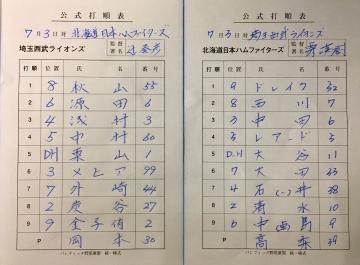 公式打順表
7月3日対 北海道日本ハムファイターズ
埼玉西武ライオンズ
監督
署名
打順 位置 氏名 番号
1 8 秋山 55
2 6 源田 6
3 4 浅村 3
4 5 中村 60
5 DH 栗山 1
6 3 メヒア 99
7 7 外崎 44
8 2 炭谷 27
9 9 金子侑 2
P 岡本 30
パシフィック野球連盟 統一様式
公式打順表
7月3日対 埼玉西武ライオンズ
北海道日本ハムファイターズ
監督
署名
打順 位置 氏名 番号
1 9 ドレイク 32
2 8 西川 7
3 3 中田 6
4 5 レアード 5
5 D.H 大谷 11
6 7 大田 33
7 4 石井(一) 38
8 2 清水 10
9 6 中島 9
P 高梨 39
パシフィック野球連盟 統一様式